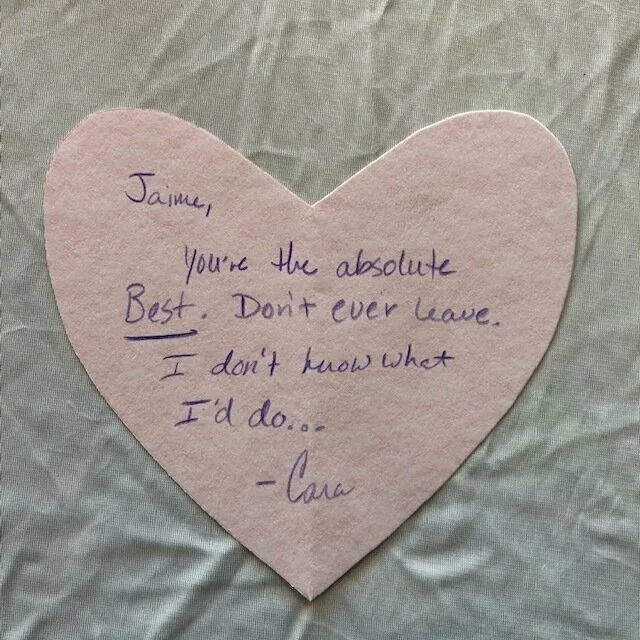 Jaime,
You're the absolute
Best. Don't ever leave.
I don't know what
I'd do...
- Cara